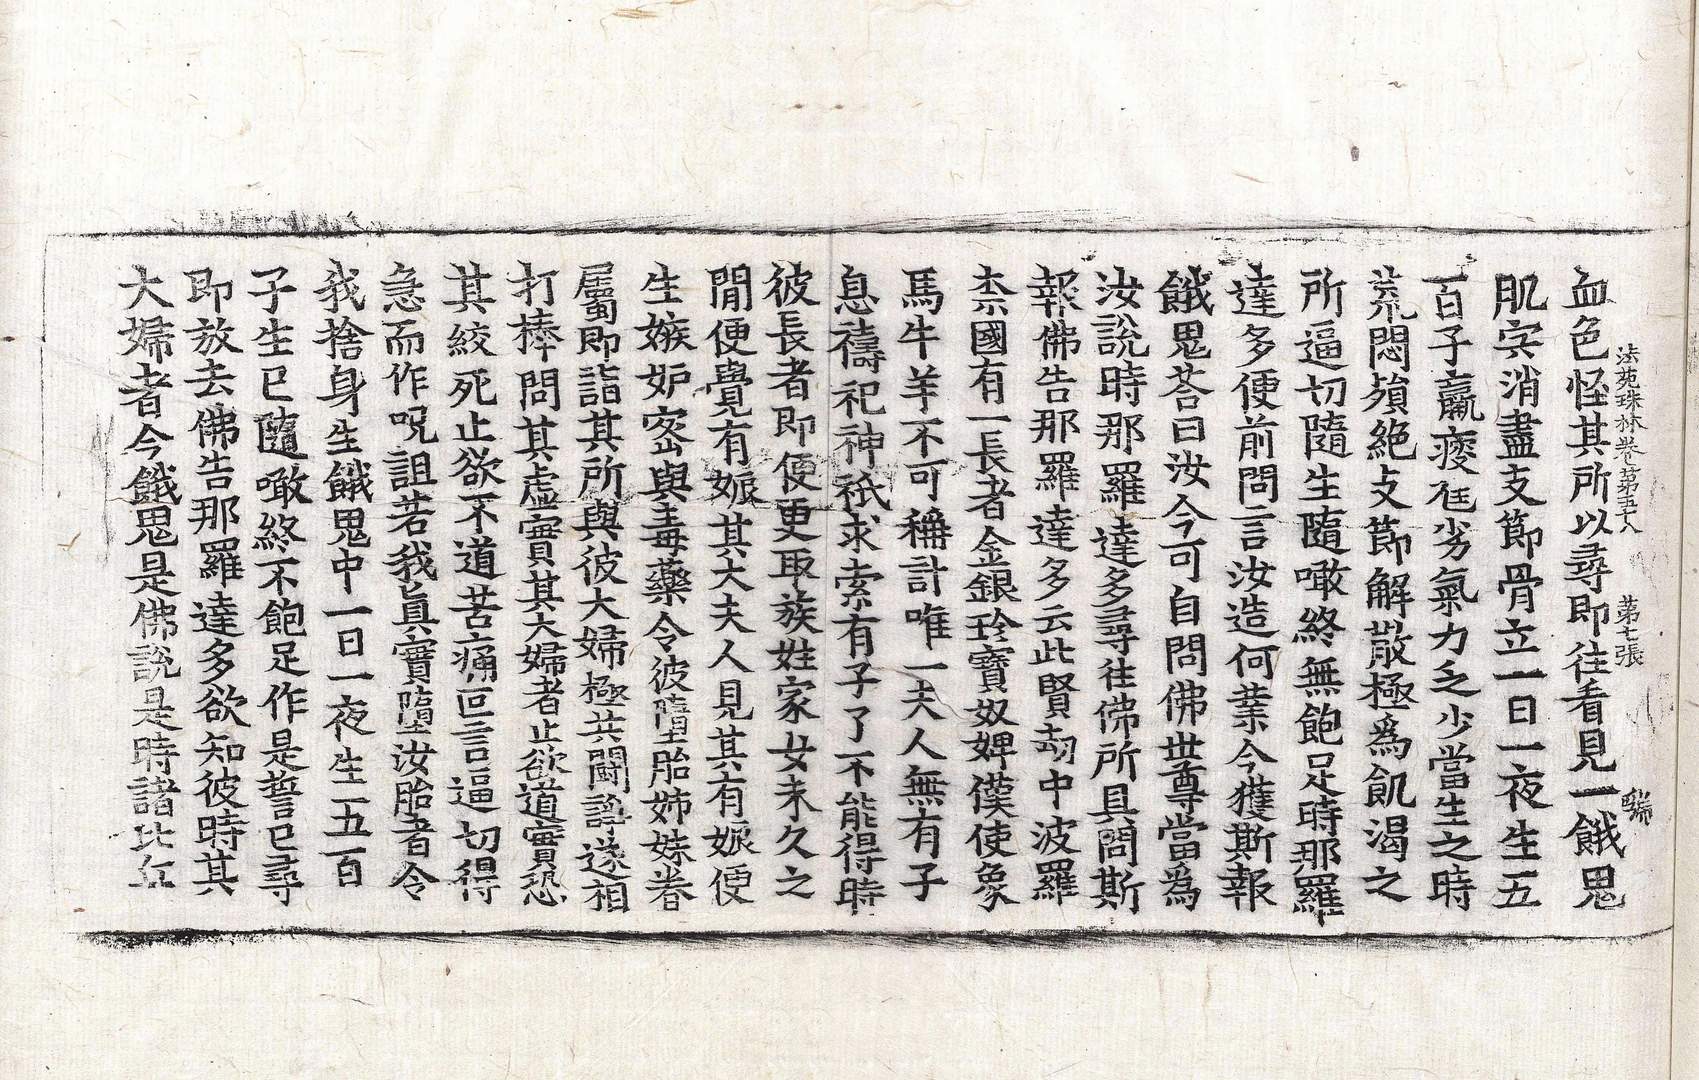 法苑珠林卷第五十八 第七張 編
血色怪其所以尋即往看見一餓鬼
肌宍消盡支節骨立一日一夜生五
百子羸瘦尫劣氣力乏少當生之時
荒悶殞絕支節解散極為飢渴之
所逼切隨生隨噉終無飽足時那羅
達多便前問言汝造何業今獲斯報
餓鬼荅曰汝今可自問佛世尊當為
汝說時那羅達多尋往佛所具問斯
報佛告那羅達多云此賢劫中波羅
柰國有一長者金銀珍寶奴婢僕使象
馬牛羊不可稱計唯一夫人無有子
息禱祀神祇求索有子了不能得時
彼長者即便更取族姓家女未久之
間便覺有娠其大夫人見其有娠便
生嫉妒密與毒藥令彼墮胎姊妹眷
屬即詣其所與彼大婦極共鬪諍遂相
打棒問其虛實其大婦者止欲道實恐
其絞死止欲不道苦痛叵言逼切得
急而作呪詛若我真實墮汝胎者令
我捨身生餓鬼中一日一夜生五百
子生已隨噉終不飽足作是誓已尋
即放去佛告那羅達多欲知彼時其
大婦者今餓鬼是佛說是時諸比丘